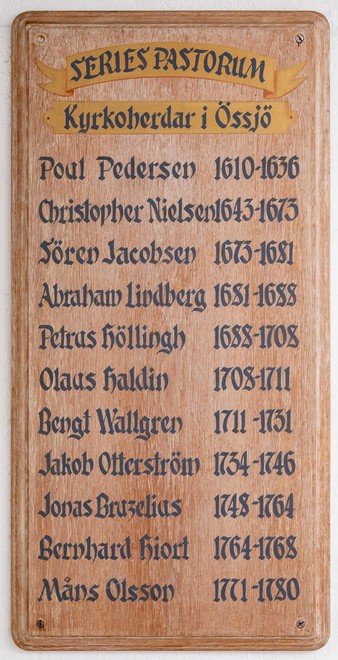 SERIES PASTORUM
Kyrkoherdar i Össjö
Poul Pedersen 1610-1636
Christopher Nielsen 1643-1673
Sören Jacobsen 1673-1681
Abraham Lindberg 1681-1688
Petrus Höllingh 1688-1708
Olaus Haldin 1708-1711
Bengt Wallgren 1711-1731
Jakob Otterström 1734-1746
Jonas Bruzelius 1748-1764
Bernhard Hiort 1764-1768
Måns Olsson 1771-1780